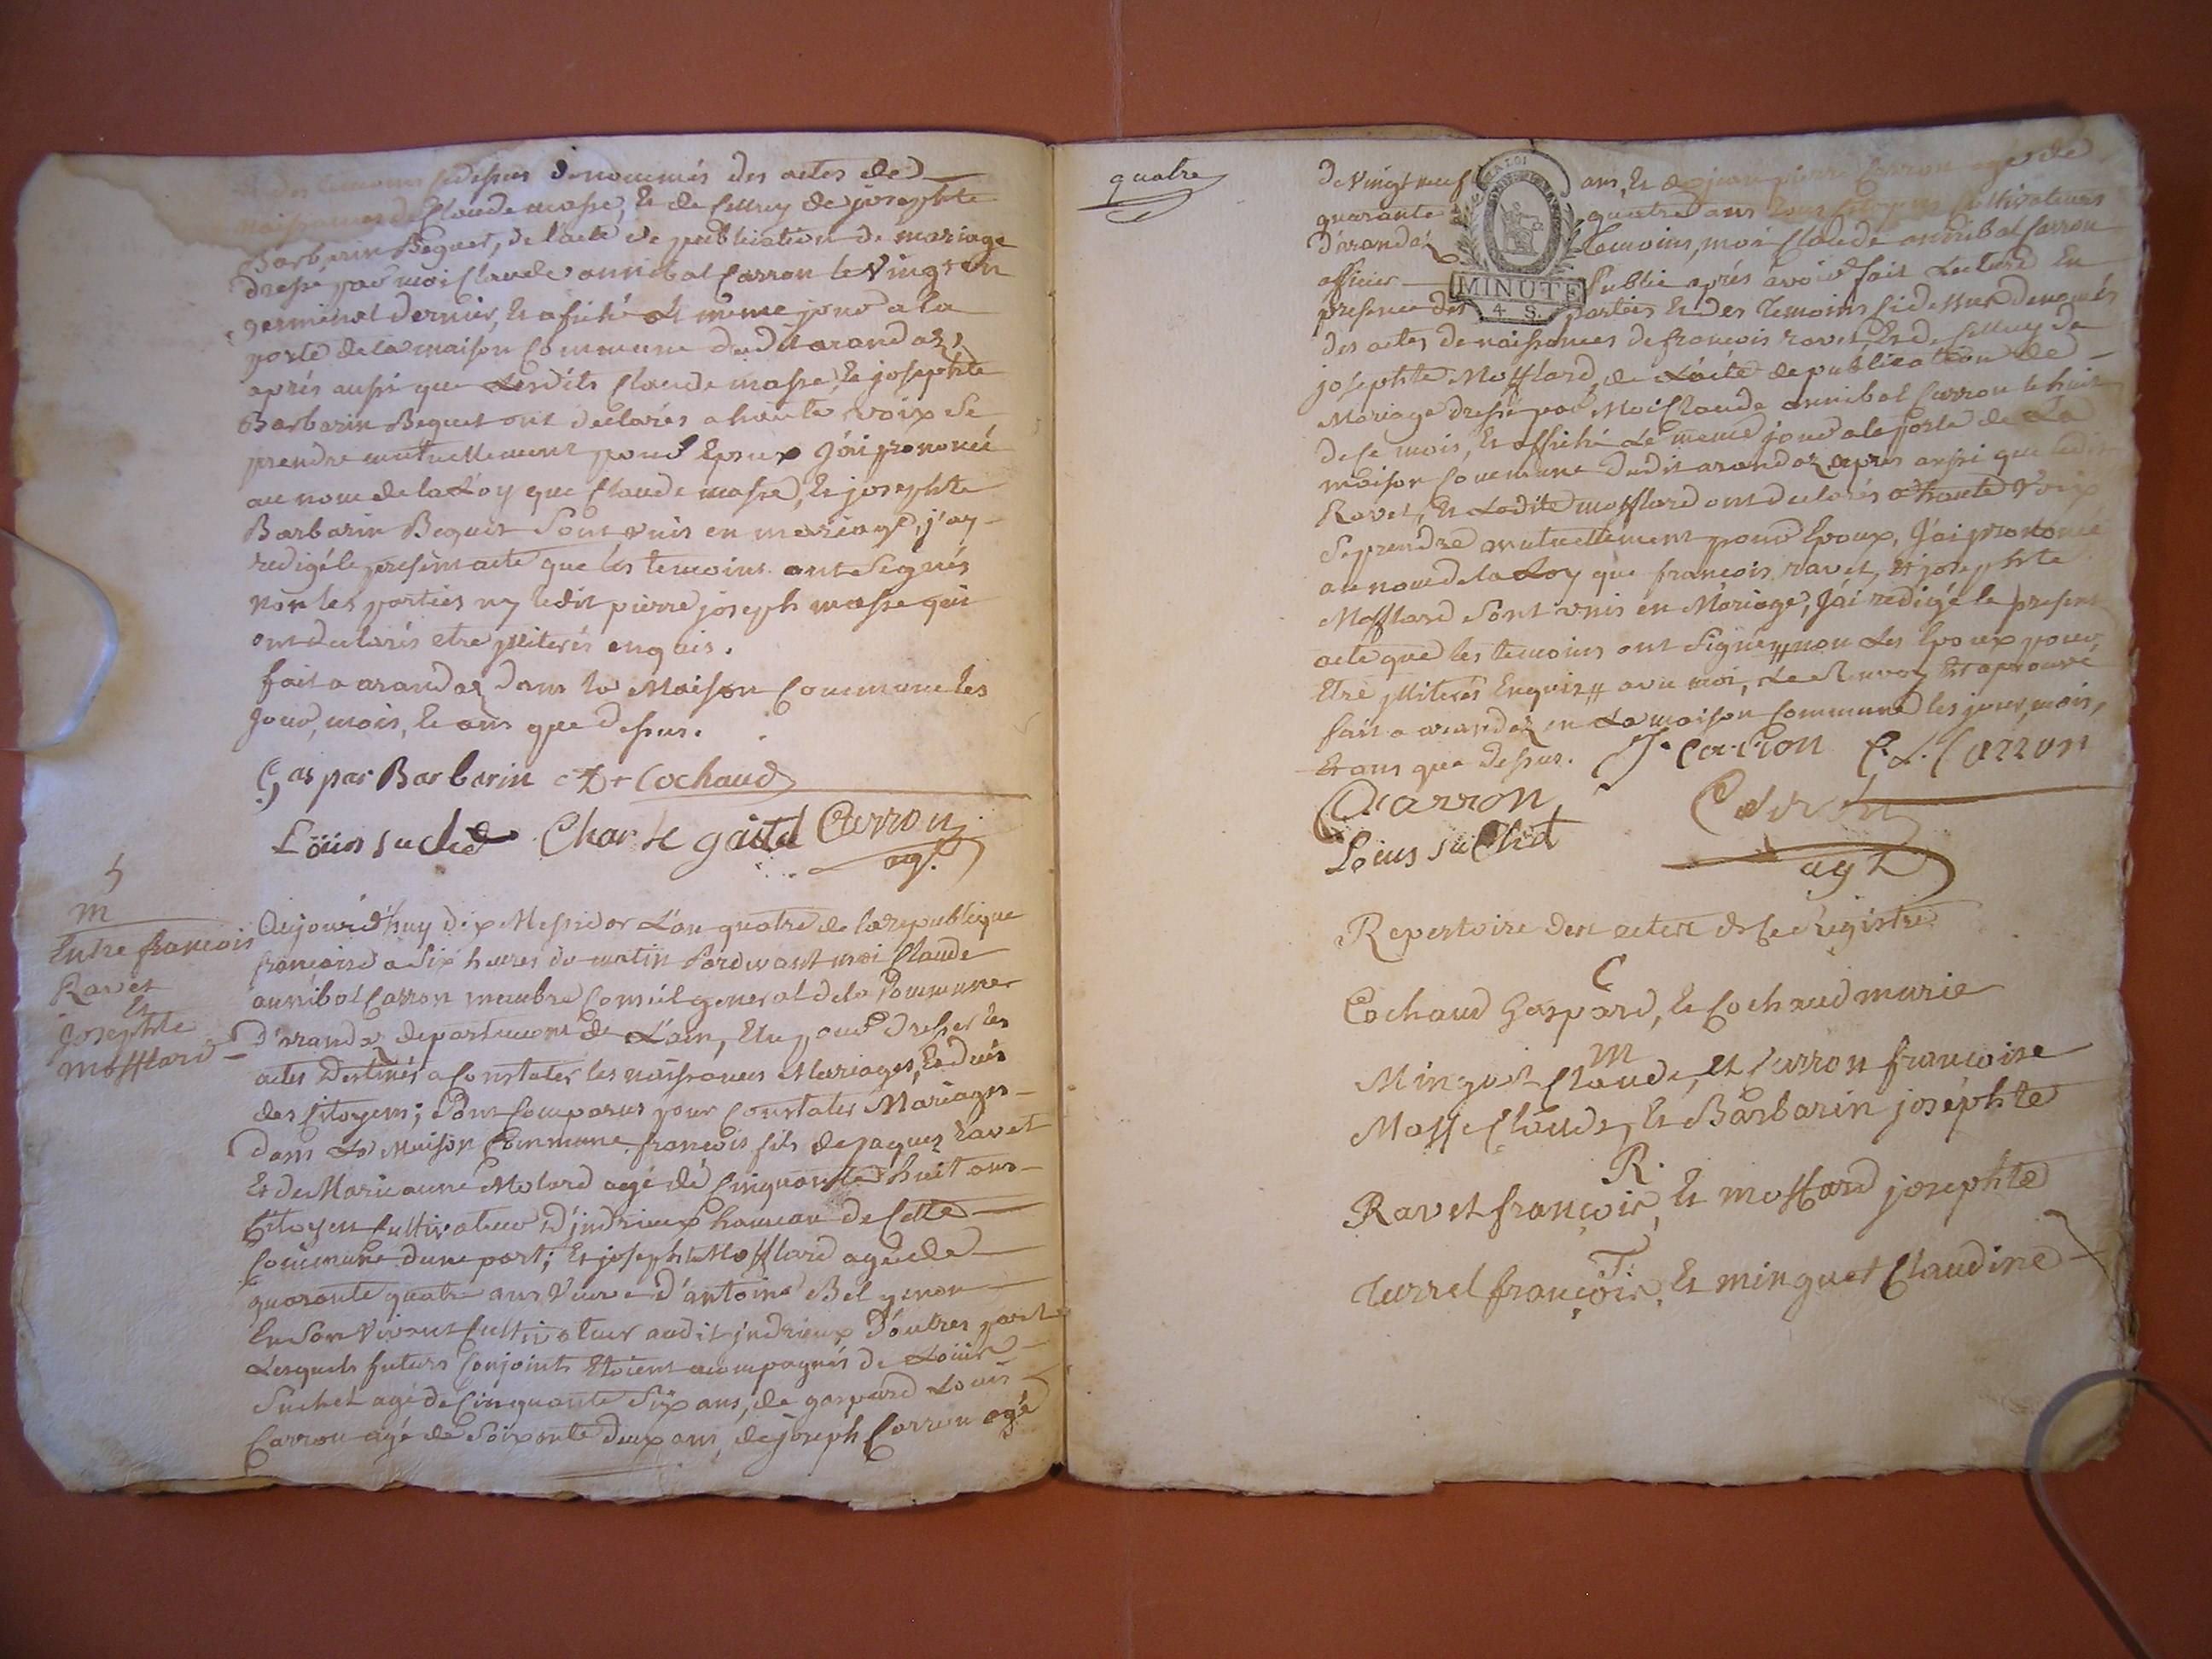 des temoins sidessus denommés des actes de
naissances de Claude masse, et de Celluy de josephte
Barbarin Béguet, de l'acte de publication de mariage
dressé par moi Claude annibal Carron le Vingt en
germinal dernier, et afiché le même jour a la
porte de la maison Commune dudit arandaz,
aprés aussi que Lesdits Claude masse, et josephte
Barbarin Beguet ont declarés a haute voix se
prendre mutuellement pour Epoux J'ai prononcé
au nom de la Loy que Claude masse, et josephte
Barbarin Beguet Sont unis en mariage, j'ay
redigé le present acte que les temoins ont Signés
non les parties ny ledit pierre joseph masse qui
ont declarés etre jlliterés enquis.
fait a arandaz dans la Maison Commune les
Jour, mois, et ans que dessus.
Gaspar Barbarin Cochaud
Loüis suchet Charle gaitd Carron
agt.
5
m
Entre francois
Ravet
Et
Josephte
mofflard
Aujourd'huy dix Messidor L'an quatre de la republique
francoise a Six heures du matin Pardevant moi Claude
annibal Carron membre Conseil general de la Commune
d'arandaz departement de L'ain, Elu pour dresser les
actes Destinés a Constater les naissances Mariages, et deces
des Citoyens; Sont Comparus pour Constater Mariages
dans La Maison Commune francois fils de jaques ravet
Et de Marie anne Molard agé de Cinquante huit ans
Citoyen Cultivateur d'jndrieux hameau de Cette
Commune dune part; Et josephte Mofflard agée de
quarante quatre ans Veuve d'antoine Bel genon
En Son Vivant Cultivateur audit jndrieux D'autres part
Lesquels futurs Conjoints Etoient acompagnés de Loüis
Suchet agé de Cinquante Six ans, de gaspard Louis
Carron agé de Soixante deux ans, de joseph Carron agé
quatre
de Vingt neuf ans, Et de jean pierre Carron agé de
quarante quatre ans tous Citoyens Cultivateurs
d'arandaz Temoins, moi Claude annibal Carron
officier Public aprés avoir fait Lecture En
presence des parties Et des Temoins sidessus denomés
MINUTE
4 S.
des actes de naissances de francois ravet, Et de Celluy de
josephte Mofflard, de L'acte de publication de
Mariage dressé par Moi Claude annibal Carron le huit
de Ce mois, Et affiché Le meme jour a la porte de La
maison Commune Dudit arandaz apres aussi que ledit
Ravet, Et Ladite mofflard ont declarés a haute Voix
Se prendre mutuellement pour Epoux, J'ai prononcé
au nom de la Loy que francois ravet, Et josephte
Mofflard Sont unis en Mariage, J'ai redigé le present
acte que les temoins ont Signé non Les Epoux pour
Etre jlliterés Enquis avec moi, Le Renvoy Est aprouvé
fait a arandaz en La maison Commune les jour, mois,
Et ans que dessus. J. Carron C. L. Carron
Carron Carron
Loüis suchet agt
Repertoire des actes de Ce Registre
C
Cochaud Gaspard, et Cochaud marie
M
Minguet Claude, et Carron francoise
Masse Claude, Et Barbarin joséphte
R.
Ravet françois, Et mofflard josephte
T.
Turrel françois, Et minguet Claudine